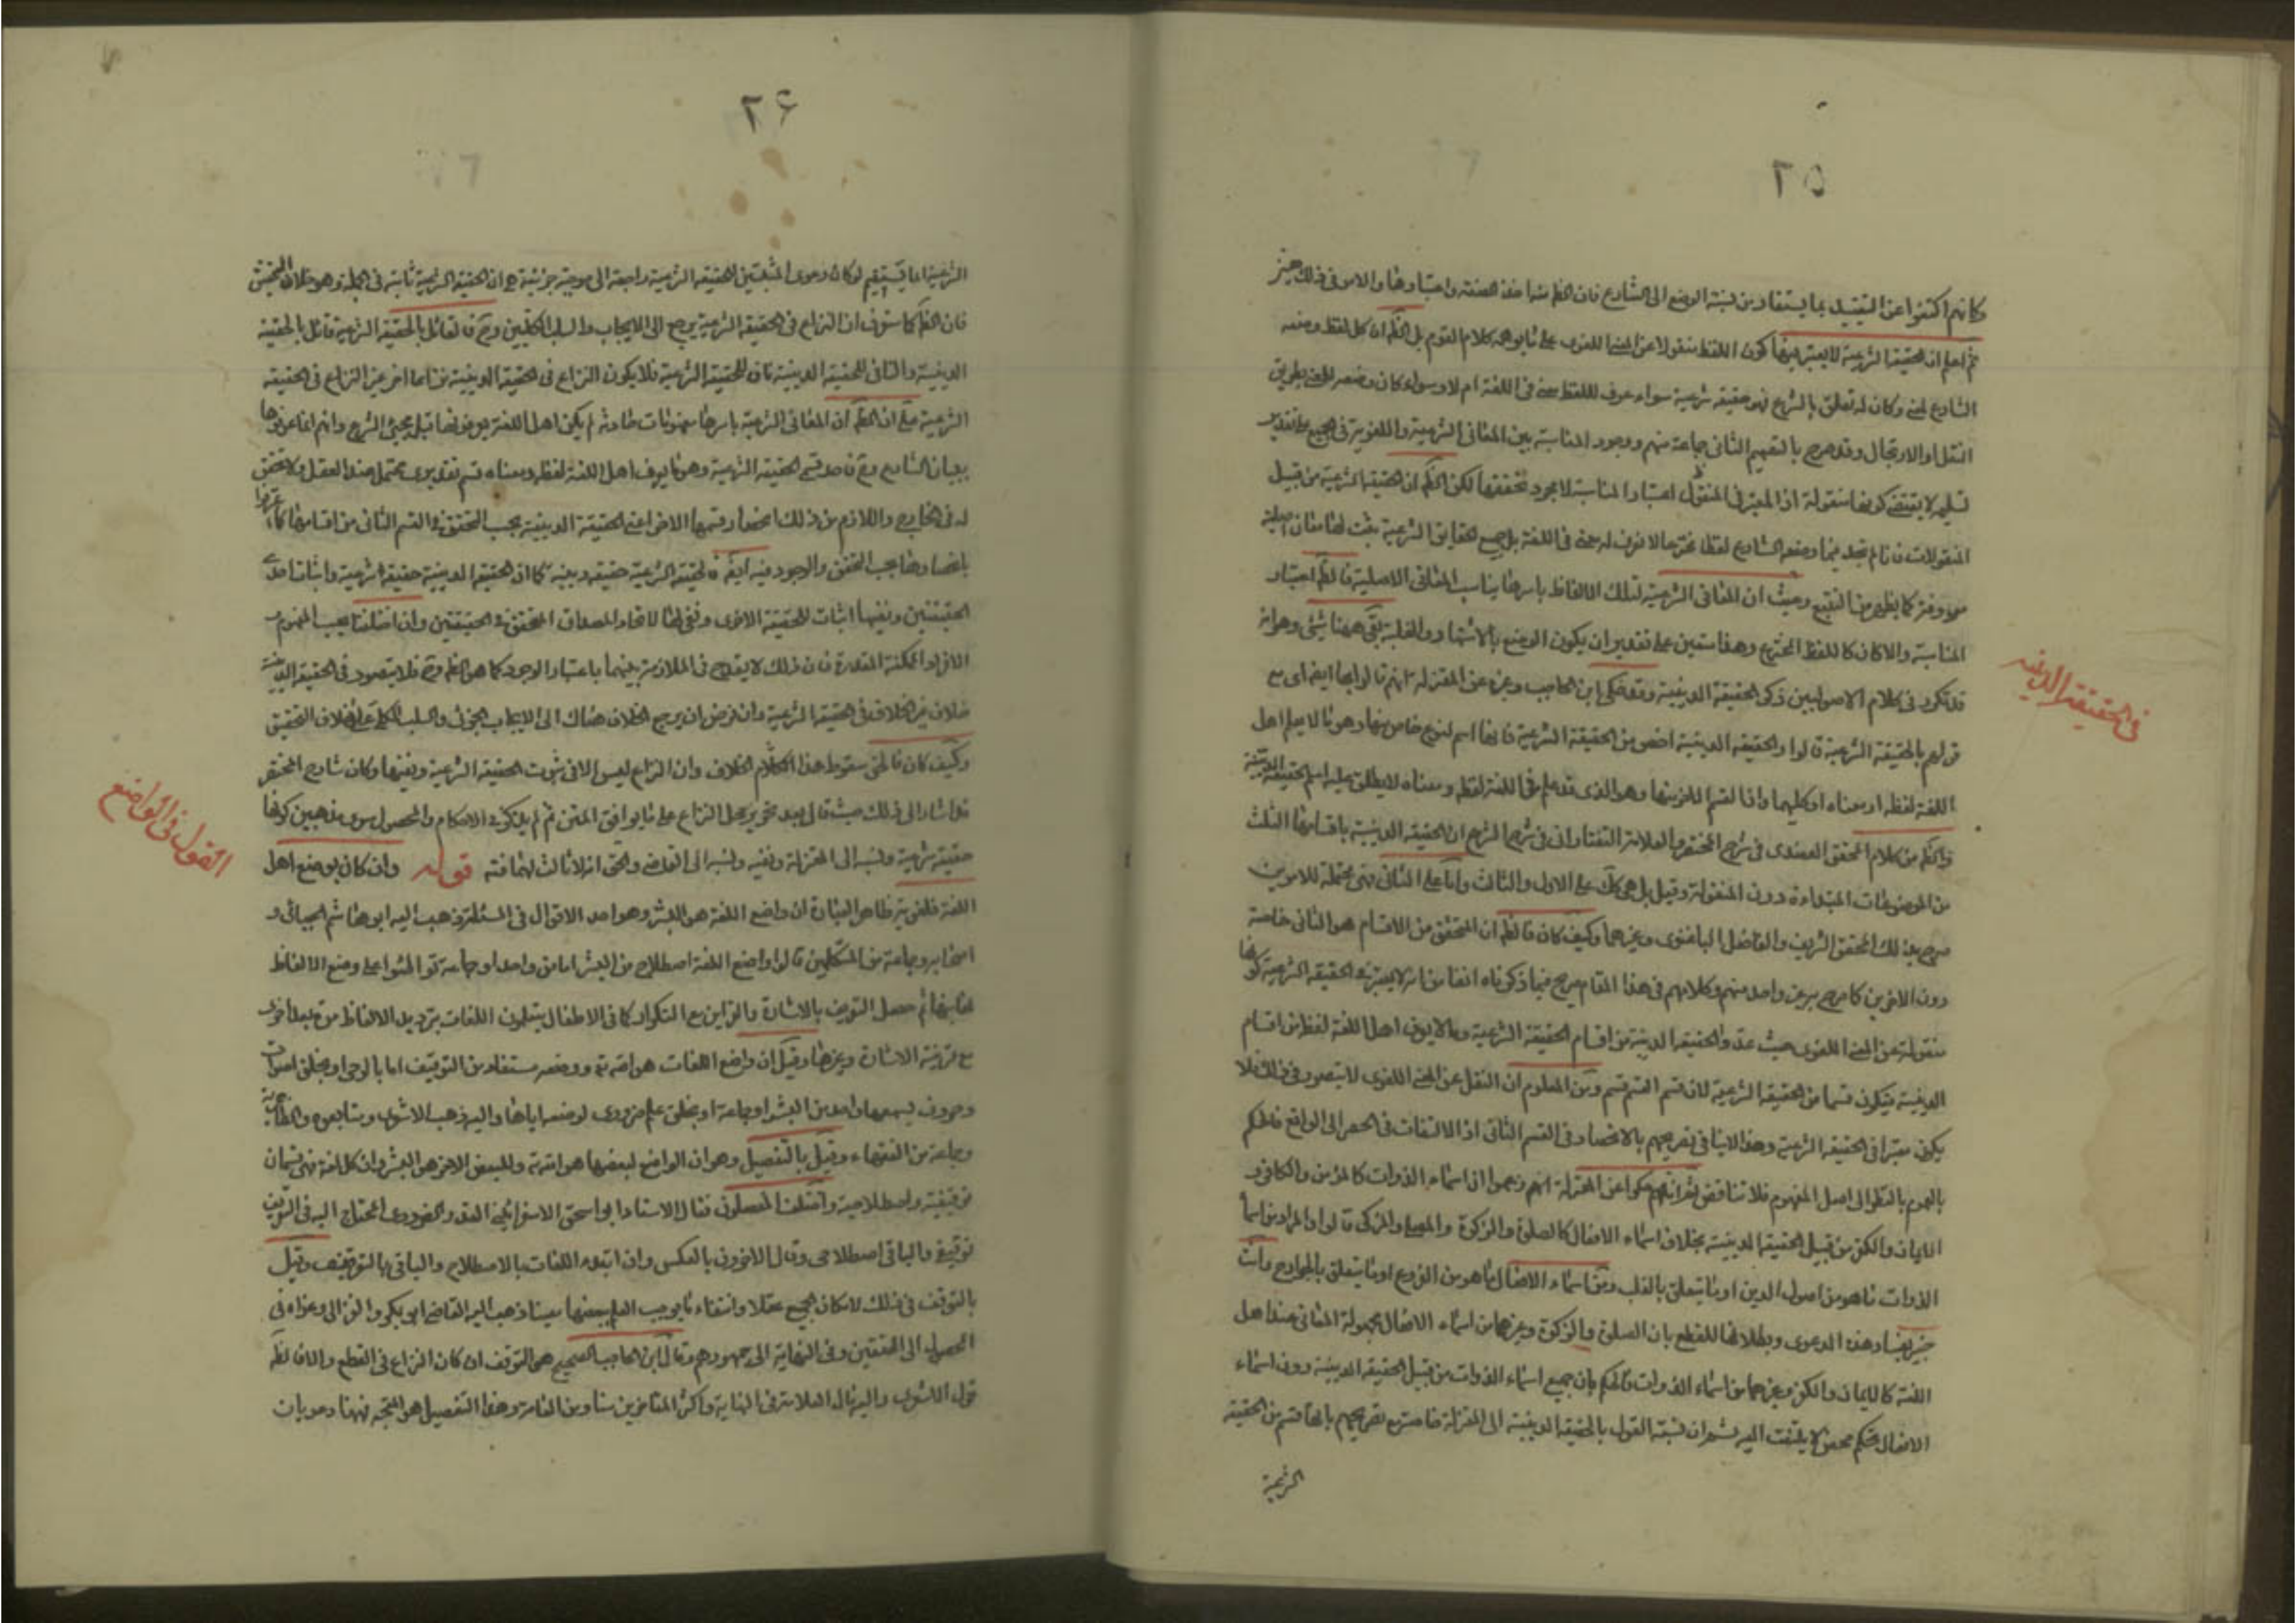 ٢٥
وكانهم اكتفوا عن التقييد بما يستفاد من نسبة الوضع الى الشارع فان الظ منها اخذ الصفة واعتبارها والامر في ذلك هين
ثم اعلم ان الحقيقة الشرعية لا يعتبر فيها كون اللفظ منقولا عن المعنى اللغوى على ما يوهمه كلام القوم بل الظ ان كل لفظ وضعه
الشارع لمعنى وكان له تعلق بالشرع فهو حقيقة شرعية سواء عرف لللفظ معنى في اللغة ام لا وسواء كان وضعه للمعنى بطريق
النقل او الارتجال وقد صرح بالتعميم الثانى جماعة منهم ووجود المناسبة بين المعانى الشرعية واللغوية في الجميع على تقدير
تسليمه لا يقتضى كونها منقولة اذ المعتبر في المنقول اعتبار المناسبة لا مجرد تحققها لكن الظ ان الحقيقة الشرعية من قبيل
المنقولات فانا لم نجد فيما وضعه الشارع لفظا مخترعا لا يعرف له معنى في اللغة بل جميع الحقايق الشرعية يثبت لها معان اصلية
معروفة كما يظهر من التتبع وحيث ان المعانى الشرعية لتلك الالفاظ باسرها يناسب المعانى الاصلية فالظ اعتبار
المناسبة والا كان كاللفظ المخترع وهذا مستبين على تقدير ان يكون الوضع بالاشتهار والغلبة بقى ههنا شئ وهو انه
قد تكرر في كلام الاصوليين ذكر الحقيقة الدينية وقد حكى ابن الحاجب وغيره عن المعتزلة انهم قالوا بها ايضا اى مع
في الحقيقة الدينية
قولهم بالحقيقة الشرعية قالوا والحقيقة الدينية اخص من الحقيقة الشرعية فانها اسم لنوع خاص منها وهو ما لا يعلم اهل
اللغة لفظه او معناه او كليهما واما القسم الاخر منها وهو الذى قد علم في اللغة لفظه ومعناه لا يطلق عليه اسم الحقيقة الدينية
والظ من كلام المحقق العضدى في شرح المختصر والعلامة التفتازانى في شرح الشرح ان الحقيقة الدينية باقسامها الثلث
من الموضوعات المبتداءة دون المنقولة وقيل بل هى كك على الاول والثالث واما على الثانى فهى محتملة للامرين
صرح بذلك المحقق الشريف والفاضل الباغنوى وغيرهما وكيف كان فالظ ان المتحقق من الاقسام هو الثانى خاصة
دون الاخرين كما صرح به غير واحد منهم وكلامهم في هذا المقام صريح فيما ذكرناه انفا من انه لا يعتبر في الحقيقة الشرعية كونها
منقولة عن المعنى اللغوى حيث عدوا الحقيقة الدينية من اقسام الحقيقة الشرعية وما لا يعرف اهل اللغة لفظه من اقسام
الدينية فيكون قسما من الحقيقة الشرعية لان قسم القسم قسم ومن المعلوم ان النقل عن المعنى اللغوى لا يتصور في ذلك فلا
يكون معتبرا في الحقيقة الشرعية وهذا لا ينافى تصريحهم بالانحصار في القسم الثانى اذ الالتفات في الحصر الى الواقع فالحكم
بالعموم بالنظر الى اصل المفهوم فلا تناقض ثم انهم حكوا عن المعتزلة انهم زعموا ان اسماء الذوات كالمؤمن والكافر و
الايمان والكفر من قبيل الحقيقة الدينية بخلاف اسماء الافعال كالصلوة والزكوة والمصلى والمزكى قالوا والمراد من اسماء
الذوات ما هو من اصول الدين او ما يتعلق بالقلب ومن اسماء الافعال ما هو من الفروع او ما يتعلق بالجوارح وانت
خبير بفساد هذه الدعوى وبطلانها للقطع بان الصلوة والزكوة وغيرهما من اسماء الافعال مجهولة المعانى عند اهل
اللغة كالايمان والكفر وغيرهما من اسماء الذوات فالحكم بان جميع اسماء الذوات من قبيل الحقيقة الدينية دون اسماء
الافعال تحكم محض لا يلتفت اليه ثم ان نسبة القول بالحقيقة الدينية الى المعتزلة خاصة مع تصريحهم بانها قسم من الحقيقة
الشرعية
٢۶
الشرعية انما يستقيم لو كان دعوى المثبتين للحقيقة الشرعية راجعة الى موجبة جزئية هى ان الحقيقة الشرعية ثابتة في الجملة وهو خلاف التحقيق
فان الظ كما ستعرف ان النزاع في الحقيقة الشرعية يرجع الى الايجاب والسلب الكليين وح فالقائل بالحقيقة الشرعية قائل بالحقيقة
الدينية والنافى للحقيقة الدينية ناف للحقيقة الشرعية فلا يكون النزاع في الحقيقة الدينية نزاعا اخر غير النزاع في الحقيقة
الشرعية مع ان الظ ان المعانى الشرعية باسرها مفهومات حادثة لم يكن اهل اللغة يعرفونها قبل مجئ الشرع وانهم انما عرفوها
ببيان الشارع وح فاحد قسمى الحقيقة الشرعية وهو ما يعرف اهل اللغة لفظه ومعناه قسم تقديرى محتمل عند العقل ولا تحقق
له في الخارج واللازم من ذلك انحصار قسمها الاخر اعنى الحقيقة الدينية بحسب التحقق في القسم الثانى من اقسامها كما اعترفوا
بانحصارها بحسب التحقق والوجود فيه ايضا فالحقيقة الشرعية حقيقة دينية كما ان الحقيقة الدينية حقيقة شرعية واثبات احدى
الحقيقتين ونفيها اثبات للحقيقة الاخرى ونفى لها لاتحاد المصداق المتحقق في الحقيقتين وان اختلفتا بحسب المفهوم و
الافراد الممكنة المقدرة فان ذلك لا يقدح في الملازمة بينهما باعتبار الوجود كما هو الظ وح فلا يتصور في الحقيقة الدينية
خلاف غير الخلاف في الحقيقة الشرعية وان فرض ان يرجع الخلاف هناك الى الايجاب الجزئى والسلب الكلى على خلاف التحقيق
وكيف كان فالحق سقوط هذا الكلام الخلاف وان النزاع ليس الا في ثبوت الحقيقة الشرعية ونفيها وكان شارح المختصر
قد اشار الى ذلك حيث قال بعد تحرير محل النزاع على ما يوافق المتن ثم لم يذكر في الاحكام والمحصول سوى مذهبين كونها
القول في الواضع
حقيقة شرعية ونسبه الى المعتزلة ونفيه ونسبه الى القاضى والحق انه لا ثالث لهما فته قوله وان كان بوضع اهل
اللغة فلغوية ظاهر العبارة ان واضع اللغة هو البشر وهو احد الاقوال في المسئلة وذهب اليه ابو هاشم الجبائى و
اصحابه وجماعة من المتكلمين قالوا واضع اللغة اصطلاح من البشر اما من واحد او جماعة تواطئوا على وضع الالفاظ
لمعانيها ثم حصل التعريف بالاشارة والقراين مع التكرار كما في الاطفال يتعلمون اللغات بترديد الالفاظ مرة بعد اخرى
مع قرينة الاشارة وغيرها وقيل ان واضع اللغات هو الله تعالى ووضعه مستفاد من التوقيف اما بالوحى او بخلق اصوات
وحروف يسمعها واحد من البشر او جماعة او بخلق علم ضرورى لوضعه اياها واليه ذهب الاشعرى ومتابعوه والظاهرية
وجماعة من الفقهاء وقيل بالتفصيل وهو ان الواضع لبعضها هو الله تعالى وللبعض الاخر هو البشر وان كل لغة فهى قسمان
توقيفية واصطلاحية واختلف المفصلون فقال الاستاد ابو اسحق الاسفرائنى القدر الضرورى المحتاج اليه في التعريف
توقيفى والباقى اصطلاحى وقال الاخرون بالعكس وان ابتداء اللغات بالاصطلاح والباقى بالتوقيف وقيل
بالتوقف في ذلك لامكان الجميع عقلا وانتفاء ما يوجب العلم ببعضها عينا ذهب اليه القاضى ابو بكر والغزالى وعزاه في
المحصول الى المحققين وفى النهاية الى جمهورهم وقال ابن الحاجب الصحيح هو التوقف ان كان النزاع في القطع والا فالظ
قول الاشعرى واليه مال العلامة في النهاية واكثر المتاخرين منا ومن العامة وهذا التفصيل هو المتجه فههنا دعويان